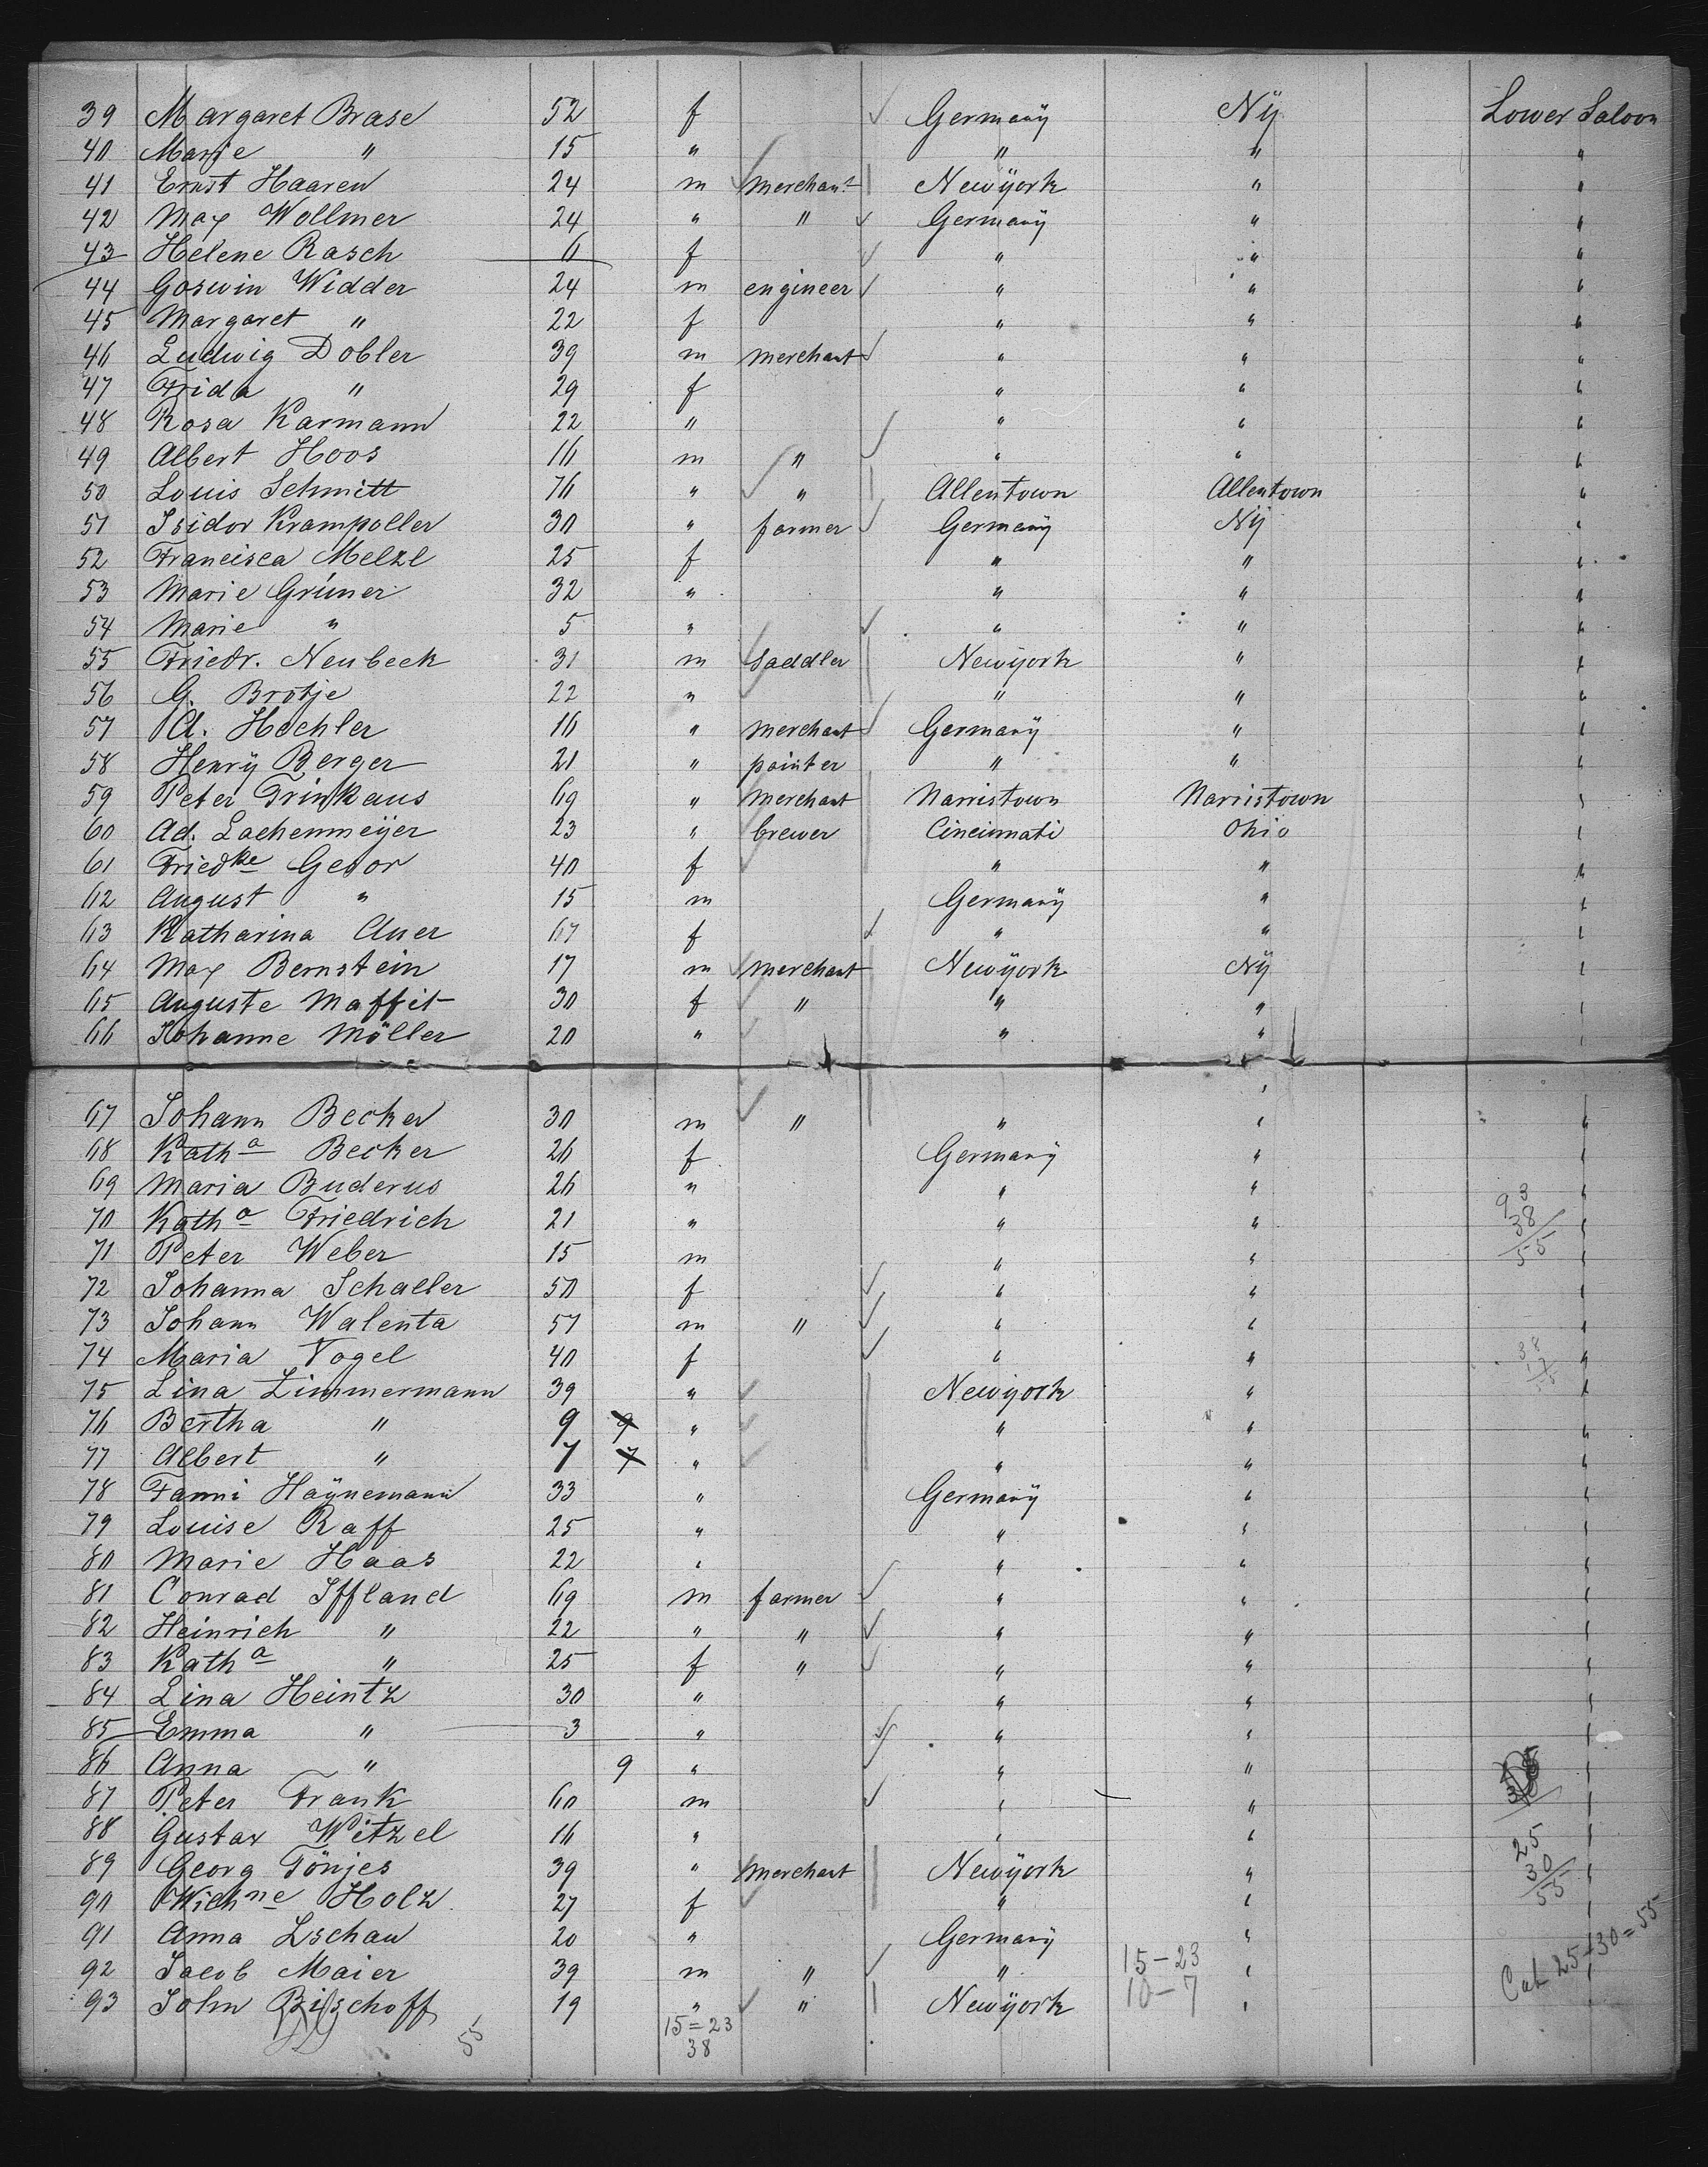 39 Margaret Brase 52 f Germany Ny Lower Saloon
40 Marie " 15 " " " "
41 Ernst Haaren 24 m merchant Newyork " "
42 Max Wollmer 24 " " Germany " "
43 Helene Rasch 6 f " " "
44 Goswin Widder 24 m engineer " " "
45 Margaret " 22 f " " "
46 Ludwig Dobler 39 m merchant " " "
47 Frida " 29 f " " "
48 Rosa Karmann 22 " " " "
49 Albert Hoos 16 m " " " "
50 Louis Schmitt 76 " " Allentown Allentown "
51 Isidor Krampoller 30 " farmer Germany Ny "
52 Francisca Melzl 25 f " " "
53 Marie Grüner 32 " " " "
54 Marie " 5 " " " "
55 Friedr. Neubeck 31 m saddler Newyork " "
56 G. Brotje 22 " " " "
57 A. Hechler 16 " merchant Germany " "
58 Henry Berger 21 " painter " " "
59 Peter Trinkaus 69 " merchant Narristown Narristown "
60 Ad. Lachenmeyer 23 " brewer Cincinnati Ohio "
61 Friedke Gesor 40 f " " "
62 August " 15 m Germany " "
63 Katharina Auer 67 f " " "
64 Max Bernstein 17 m merchant Newyork Ny "
65 Auguste Maffit 30 f " " " "
66 Johanne Möller 20 " " " "
67 Johann Becker 30 m " " " "
68 Katha Becker 26 f Germany " "
69 Maria Buderus 26 " " " "
93
70 Katha Friedrich 21 " " " "
38
71 Peter Weber 15 m " " "
55
72 Johanna Schaller 50 f " " "
73 Johann Walenta 57 m " " " "
74 Maria Vogel 40 f " " "
38
17
75 Lina Zimmermann 39 " Newyork " "
76 Bertha " 9 9 " " " "
77 Albert " 7 7 " " " "
78 Fanni Haynemann 33 " Germany " "
79 Louise Raff 25 " " " "
80 Marie Haas 22 " " " "
81 Conrad Iffland 69 m farmer " " "
82 Heinrich " 22 " " " " "
83 Katha " 25 f " " " "
84 Lina Heintz 30 " " " "
85 Emma " 3 " " " "
86 Anna " 9 " " " "
87 Peter Frank 60 m " " "
88 Gustav Witzel 16 " " " "
25
89 Georg Tönjes 39 " merchant Newyork " "
30
90 Wichne Holz 27 f " " "
55
91 Anna Zschau 20 " Germany " "
92 Jacob Maier 39 m " " 15-23 " "
Cat 25+30=55
93 John Bischoff 19 " " Newyork 10-7 " "
55 15=23
38